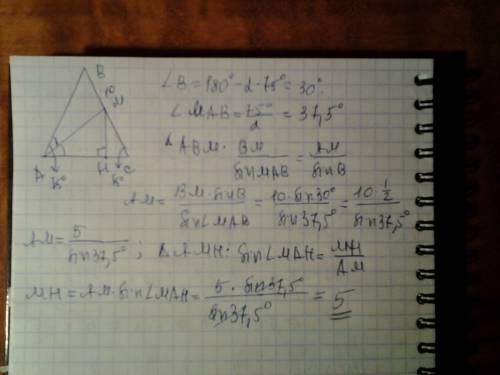 B
10
M
A
H
C
75°
75°
∠B = 180° - 2 · 75° = 30°
∠MAB = 75°/2 = 37,5°
△ABM: BM/sinMAB = AM/sinB
AM = BM·sinB/sin∠MAB = 10·sin30°/sin37,5° = 10·1/2/sin37,5°
AM = 5/sin37,5° ; △AMH: sin∠MAH = MH/AM
MH = AM·sin∠MAH = 5·sin37,5°/sin37,5° = 5